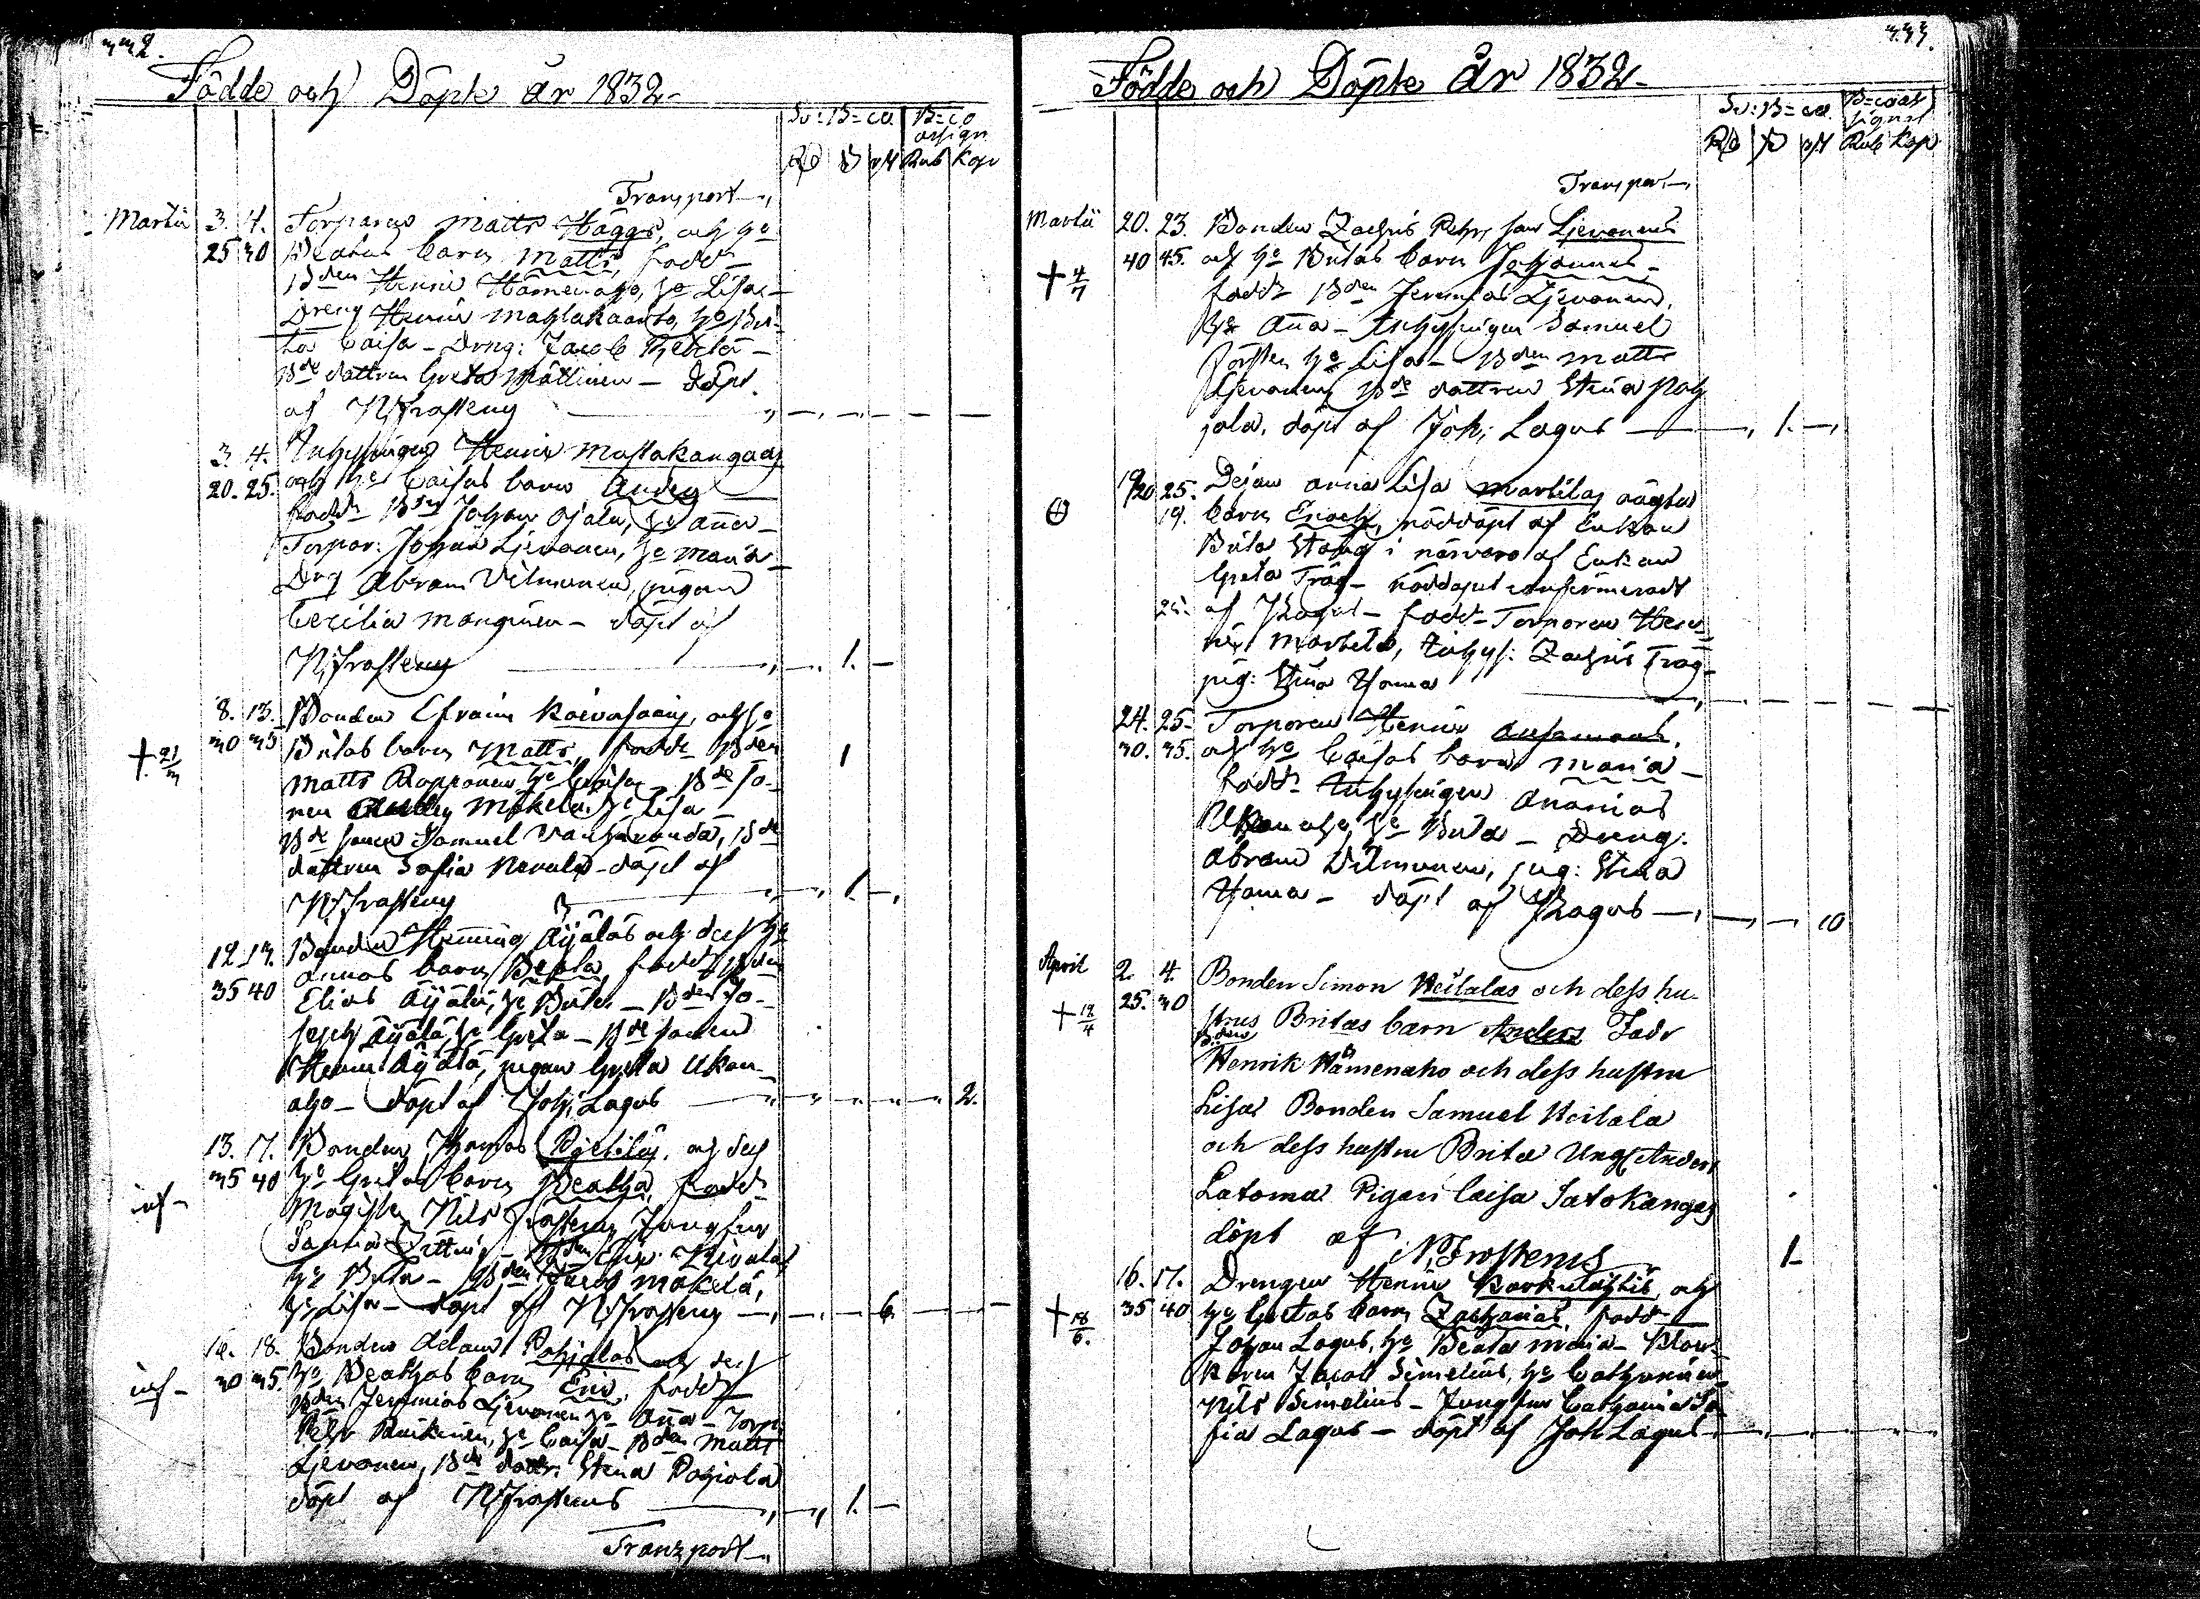 332.
Födde och Döpte år 1832
Sv: B=co
B=co assign
Rd ß rst Rub Kop
Transport
Martii 3. 4. Torparen Matts Häggs, och h:o
25 30 Beatas barn Matts, fadd:
B:den Henric Hämenaho, h:o Lisa
Dreng Henric Maplakaarto, h:o Bri-
ta Caisa - Dräng: Jacob
B:de dottren Greta Måttinen - döpt
af N Frosterus
3. 4. Inhysingen Henric Mastakangas
20. 25. och h:os Caisas barn Anders
fadd: B:den Johan Ojala, h:o Anna
Torpar: Johan Ljevonen, h:o Maria
Drg Abram Vilmunen, pigan
Cecilia Manginen - döpt af
N Frosterus 1.
8. 13. Bonden Efraim Koivusaaris, och h:o
30 35 Britas barn Matts, fadd: B:den
+ 21/3
Matts Ropponen h:o Caisa - B:de so-
nen Anders Mökelä h:o Lisa
B:de sonen Samuel Vanharanda, B:de
dottren Sofia Nevala - döpt af
N Frosterus 1
12 13. Bonden Henning Äijäläs och dess h:o
35 40 Annas barn Beata, fadd: B:den
Elias Äijälä, h:o Brita - B:den Jo-
seph Äijälä, h:o Greta - B:de sonen
Henric Äijälä, pigan Greta Ukon-
aho - döpt af Joh: Lagus 2.
13. 17. Bonden Thomas Pietiläs, och dess
35 40 h:o Gretas barn Beatha, fadd:
Magister Nils Frosterus Jungfru
h:o Brita - B:den Jacob Mökelä,
h:o Lisa - döpt af N Frosterus 6.
16. 18. Bonden Adam Pohjolas och dess
30 35. h:o Beathas barn Eric, fadd:
B:den Jeremias Ljevonen h:o Anna - Torp:
Pehr h:o Caisa - B:den Matts
Ljevonen, B:de dottr: Stina Pohjola
döpt af N Frosterus 1.
Transport
333.
Födde och Döpte År 1832
Sv: B=co
B=co assignat
Rd ß rst Rub Kop
Transport
Martii 20. 23. Bonden Zachris Pehrsson Ljevonens
40 45. och h:o Britas barn Johannes
+ 4/7
fadd: B:den Jeremias Ljevonen,
h:o Anna - Inhysingen Samuel
h:o Lisa - B:den Matts
Ljevonen B:de dottren Stina Poh
jola, döpt af Joh: Lagus 1.
19/20 25. Dejan Anna Lisa Martilas oägta
19. barn Enoch, nöddöpt af Enkan
Brita Stång i närvaro af Enkan
Greta Träg - nöddopet confirmeradt
25. af J Lagus - fadd: Torparen Hen-
ric Martila, Inhys: Zachris Träg
pig: Stina Hama
24. 25. Torparen Henric
30. 35. och h:o Caisas barn Maria
fadd: Inhysingen Ananias
Ukonaho, h:o Brita - Dreng:
Abram Vilmunen, pig: Stina
Hama - döpt af J Lagus 10
April 2. 4. Bonden Simon Heitalas och dess hu-
25. 30 strus Britas barn Anders Fadr
+ 12/4
B:den
Henrik Hämenaho och dess hustru
Lisa Bonden Samuel Heitala
och dess hustru Brita Ungk Anders
Latoma Pigan Caisa Satokangas
döpt af N. Frosterus 1
16. 17. Drengen Henric och
35 40 h:o Gretas barn Zacharias, fadd:
+ 18/6.
Johan Lagus, h:o Beata Maria -
Jacob Simelius, h:o Catharina
Nils Simelius - Jungfru Catharina So
fia Lagus - döpt af Joh Lagus